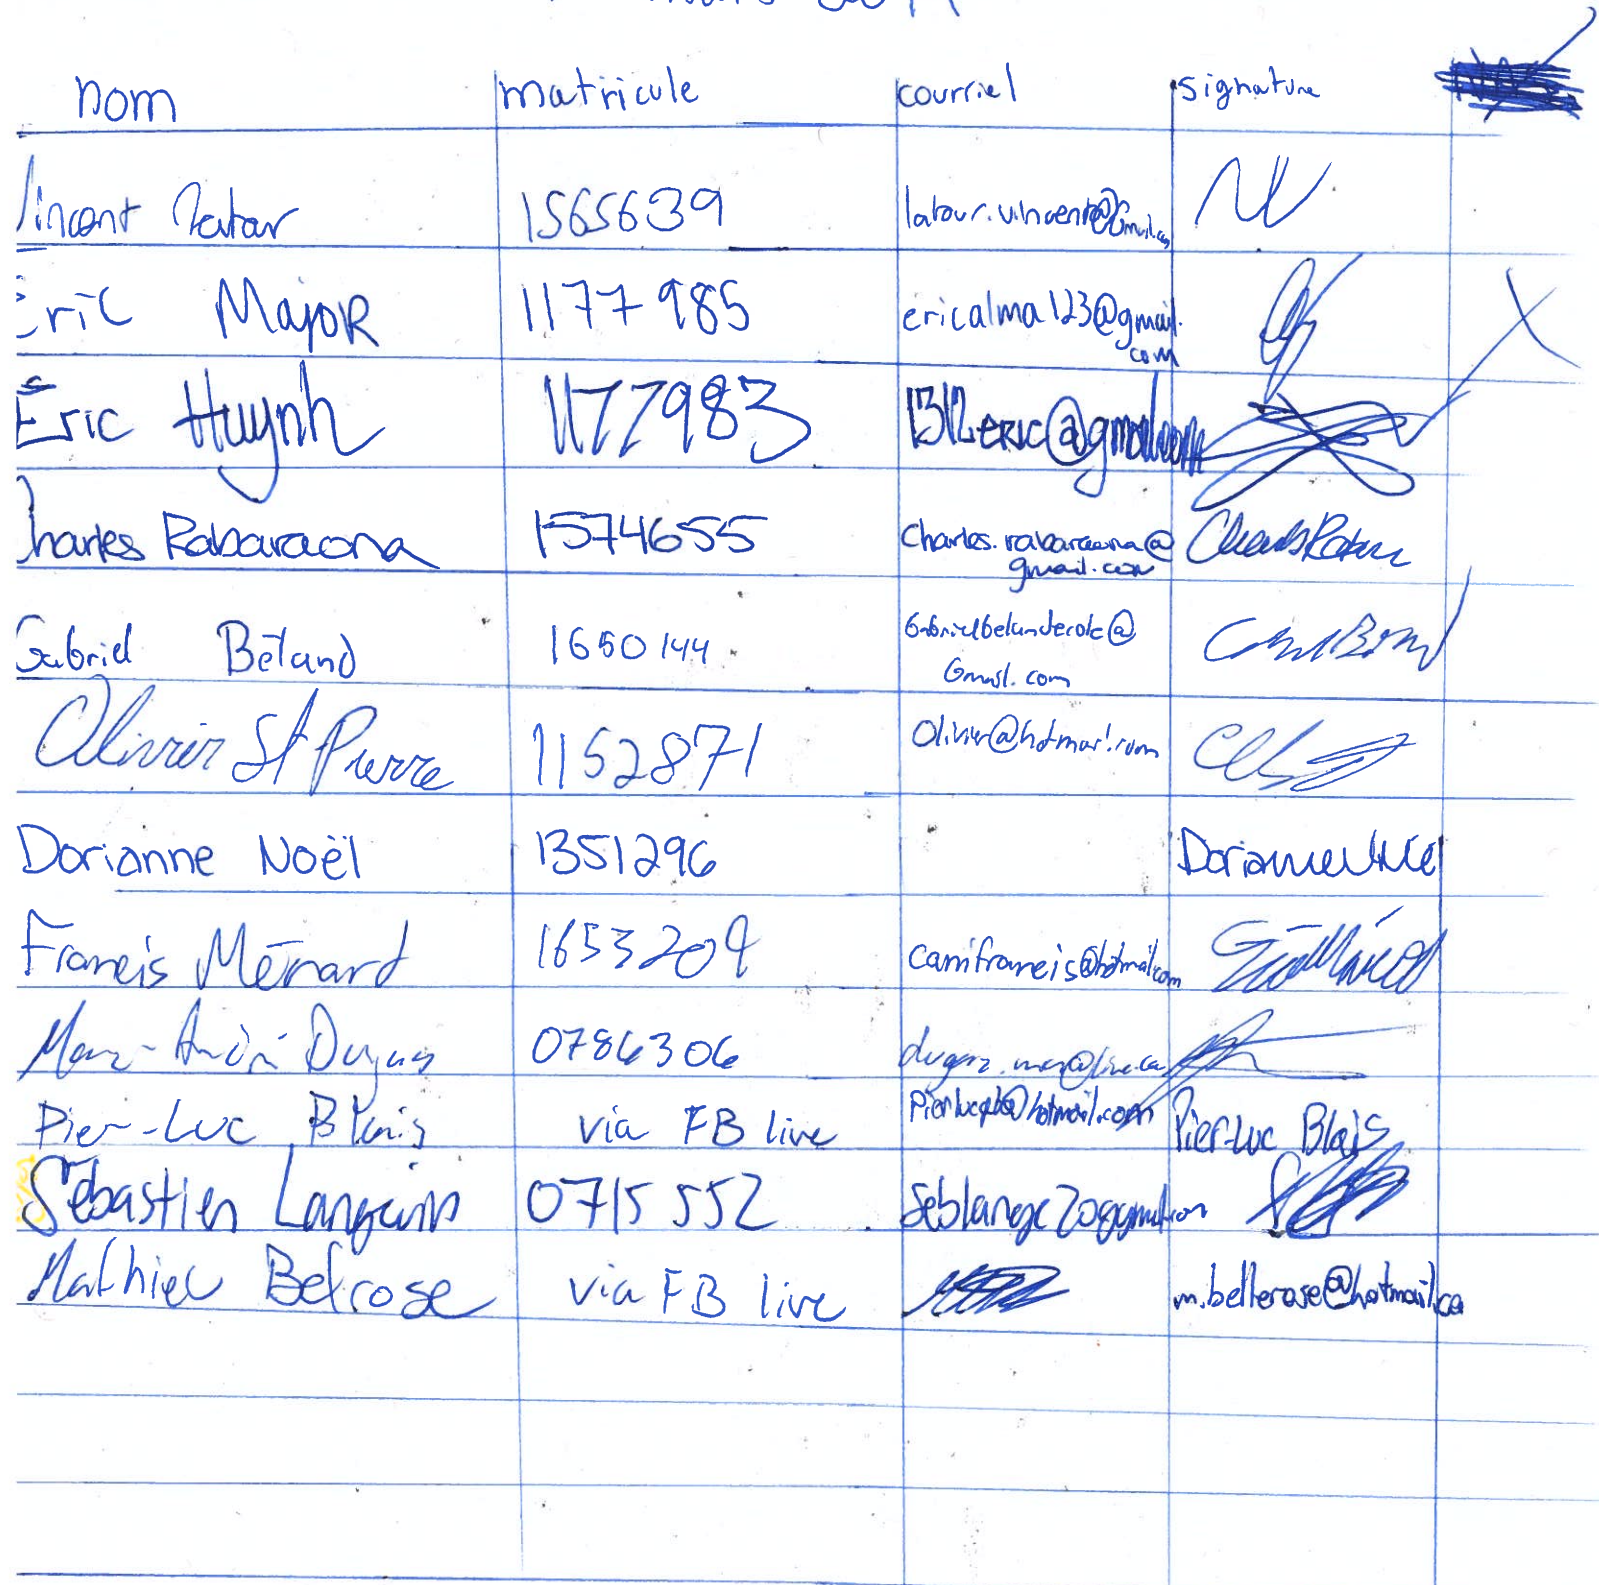 nom matricule courriel signature
Vincent Latour 1565639 latour.vincent@gmail.com
Eric Major 1177985 ericalma123@gmail.
com
Éric Huynh 1177983 1312eric@gmail.com
Charles Rabaraona 1574655 Charles.rabaraona@
gmail.com
Gabriel Béland 1650144
Gmail.com
Olivier St Pierre 1152871 Olivier@hotmail.com
Dorianne Noël 1351296
Francis Ménard 1653209 camifrancis@hotmail.com
Marc-André Dugas 0786306
Pier-Luc Blais via FB live Pier-Luc Blais
Sébastien Langevin 0715552
Mathieu Belrose via FB live m.bellerose@hotmail.ca